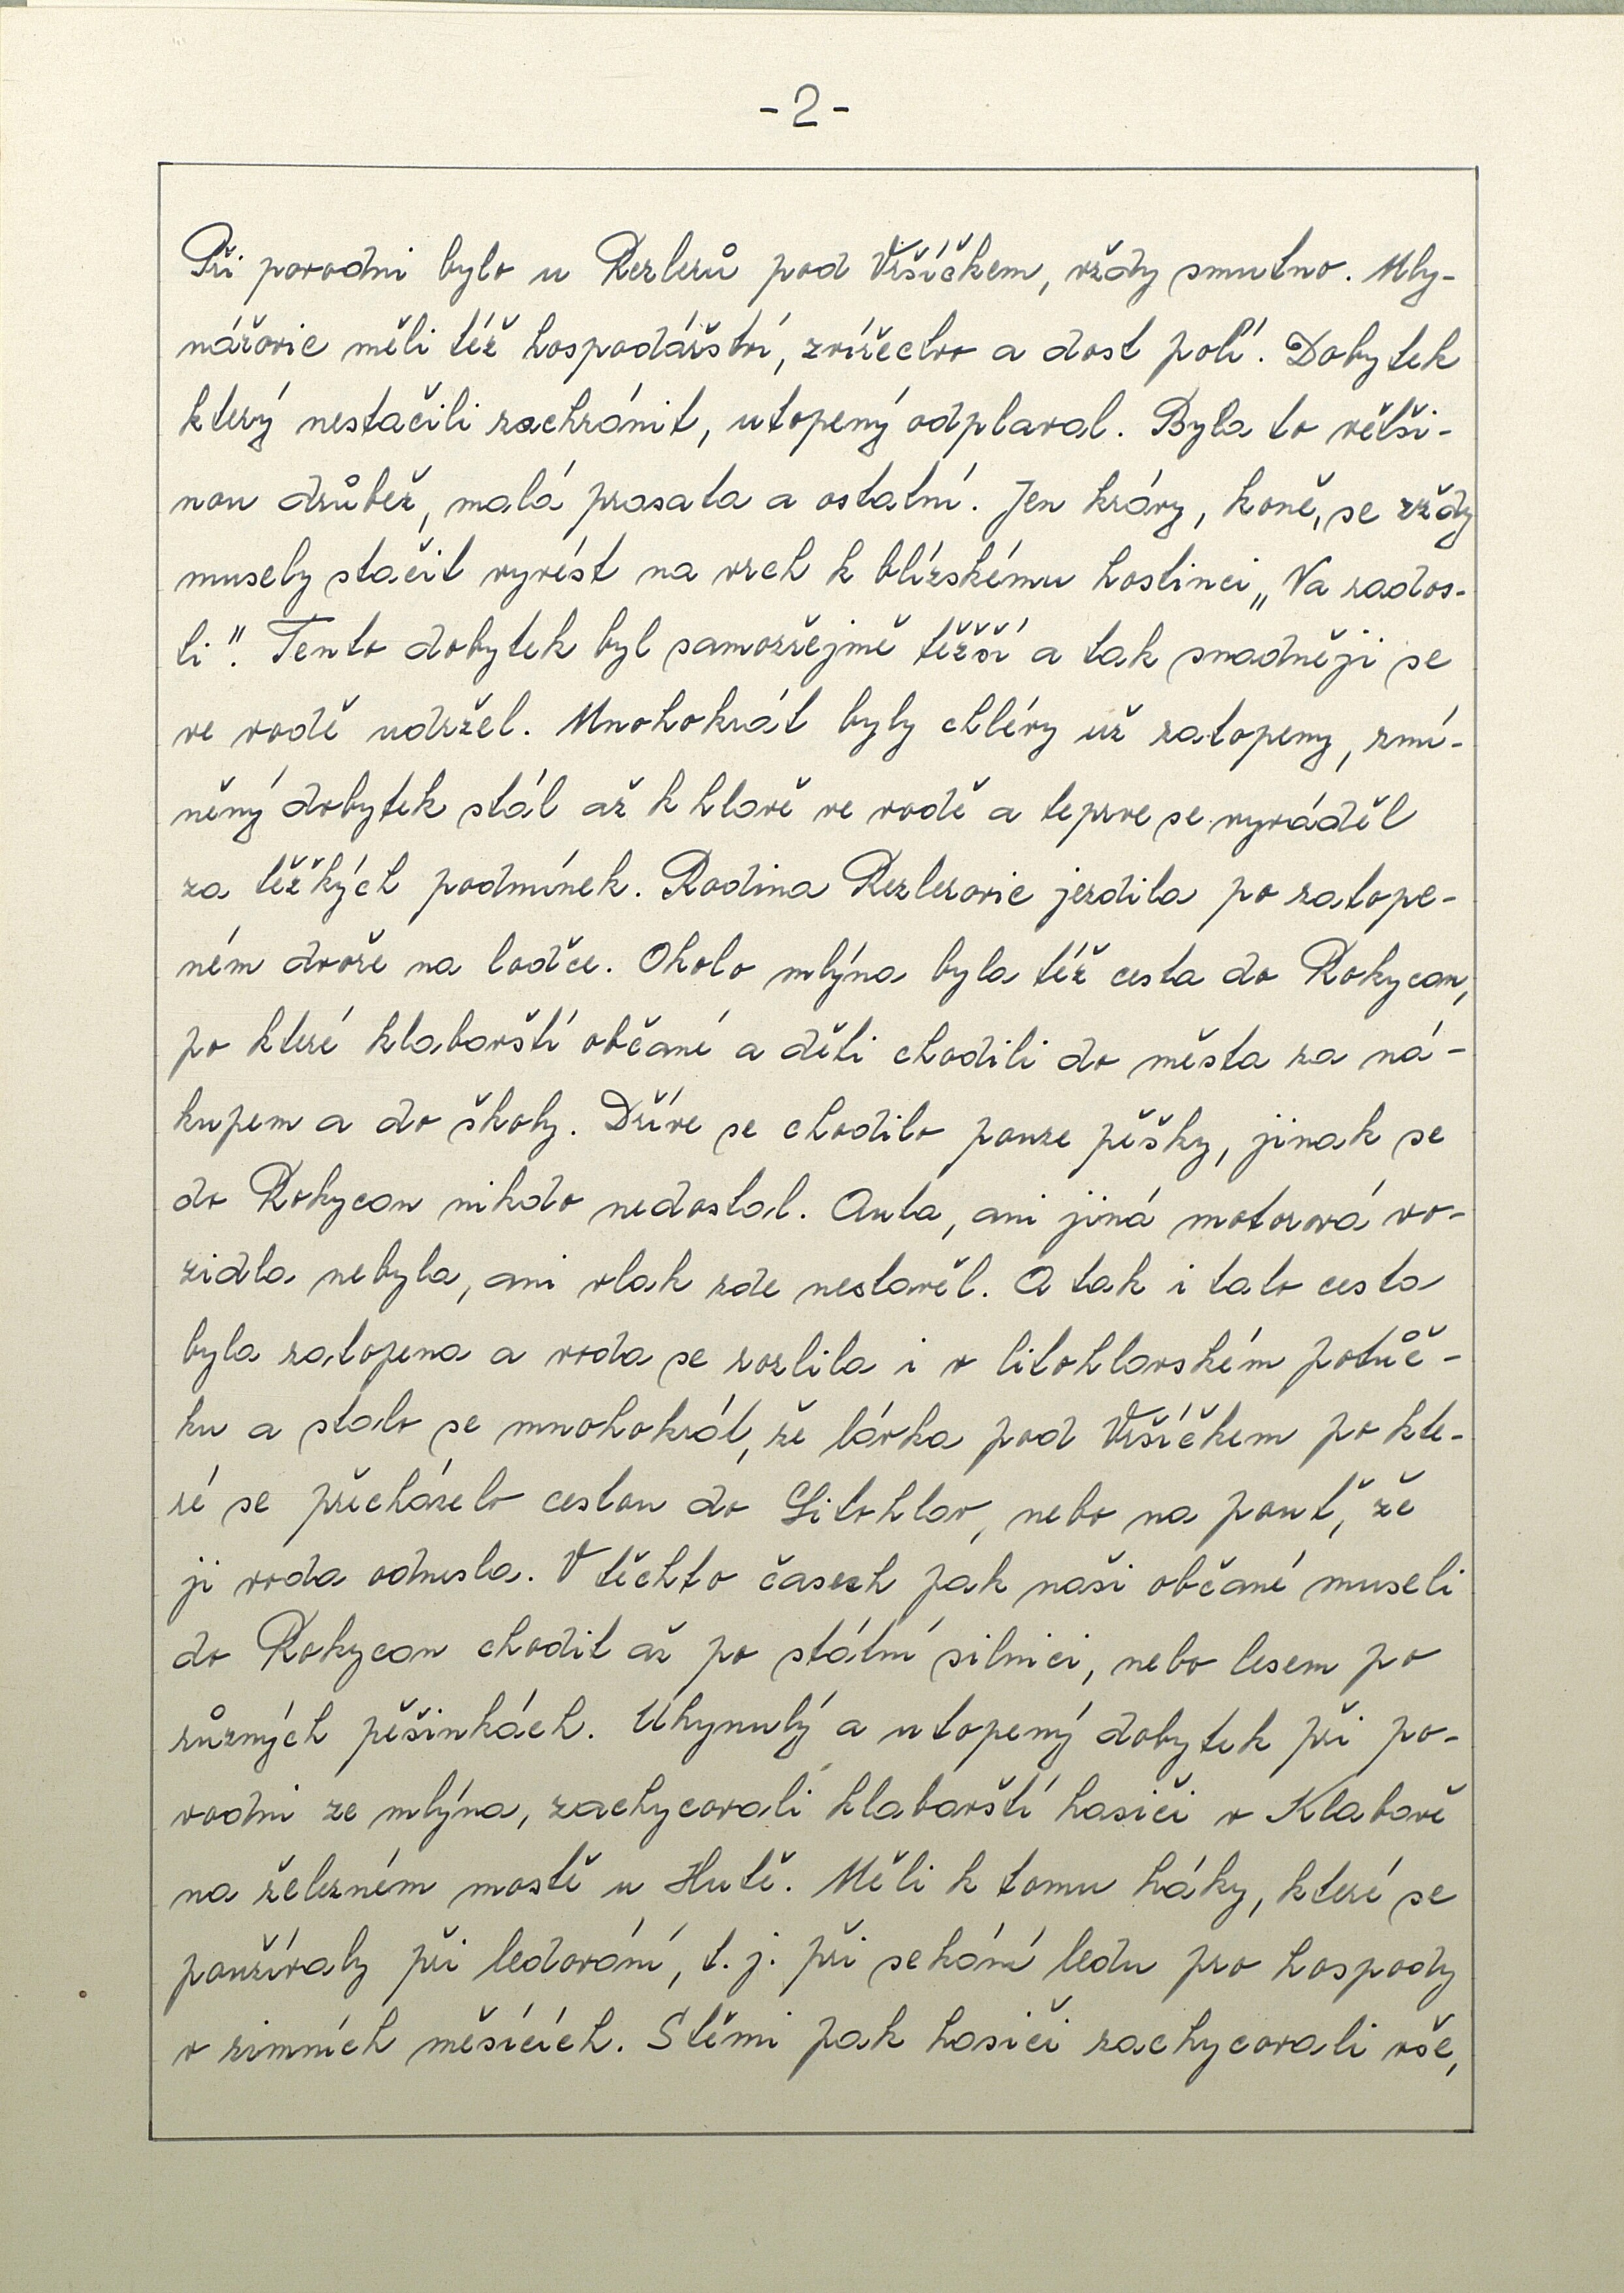 -2-
Při povodni bylo u Rezlerů pod Vršíčkem, vždy smutno. Mly-
nářovic měli též hospodářství, zvířectvo a dost polí. Dobytek
který nestačili zachránit, utopený odplaval. Byla to větši-
nou drůbež, malá prasata a ostatní. Jen krávy, koně, se vždy
musely stačit vyvést na vrch k blízskému hostinci „Na rados-
ti". Tento dobytek byl samozřejmě těžší a tak snadněji se
ve vodě udržel. Mnohokrát byly chlévy už zatopeny, zmí-
něný dobytek stál až k hlavě ve vodě a teprve se vyváděl
za těžkých podmínek. Rodina Rezlerovic jezdila po zatope-
ném dvoře na loďce. Okolo mlýna byla též cesta do Rokycan,
po které klabavští občané a děti chodili do města za ná-
kupem a do školy. Dříve se chodilo pouze pěšky, jinak se
do Rokycan nikdo nedostal. Auta, ani jiná motorová vo-
zidla nebyla, ani vlak zde nestavěl. A tak i tato cesta
byla zatopena a voda se rozlila i v litohlavském potůč-
ku a stalo se mnohokrát, že lávka pod Vršíčkem po kte-
ré se přecházelo cestou do Litohlav, nebo na pouť, že
ji voda odnesla. V těchto časech pak naši občané museli
do Rokycan chodit až po státní silnici, nebo lesem po
různých pěšinkách. Uhynulý a utopený dobytek při po-
vodni ze mlýna, zachycovali klabavští hasiči v Klabavě
na železném mostě u Hutě. Měli k tomu háky, které se
používaly při ledování, t. j. při sekání ledu pro hospody
v zimních měsících. S těmi pak hasiči zachycovali vše,